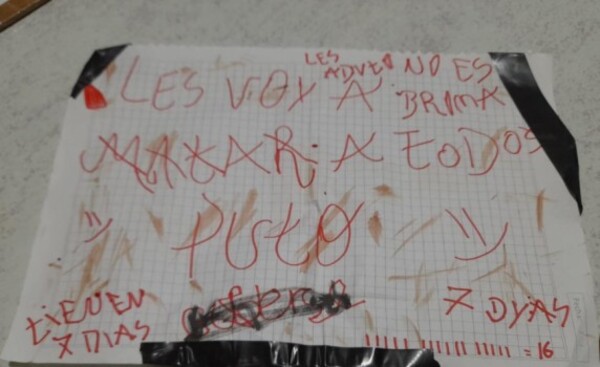 LES VOY A MATAR A TODOS
LES ADVTO NO ES BROMA
PUTO
=) =)
TIENEN 7 DIAS
7 DYAS
IIIIIIIIIIIIIIII = 16